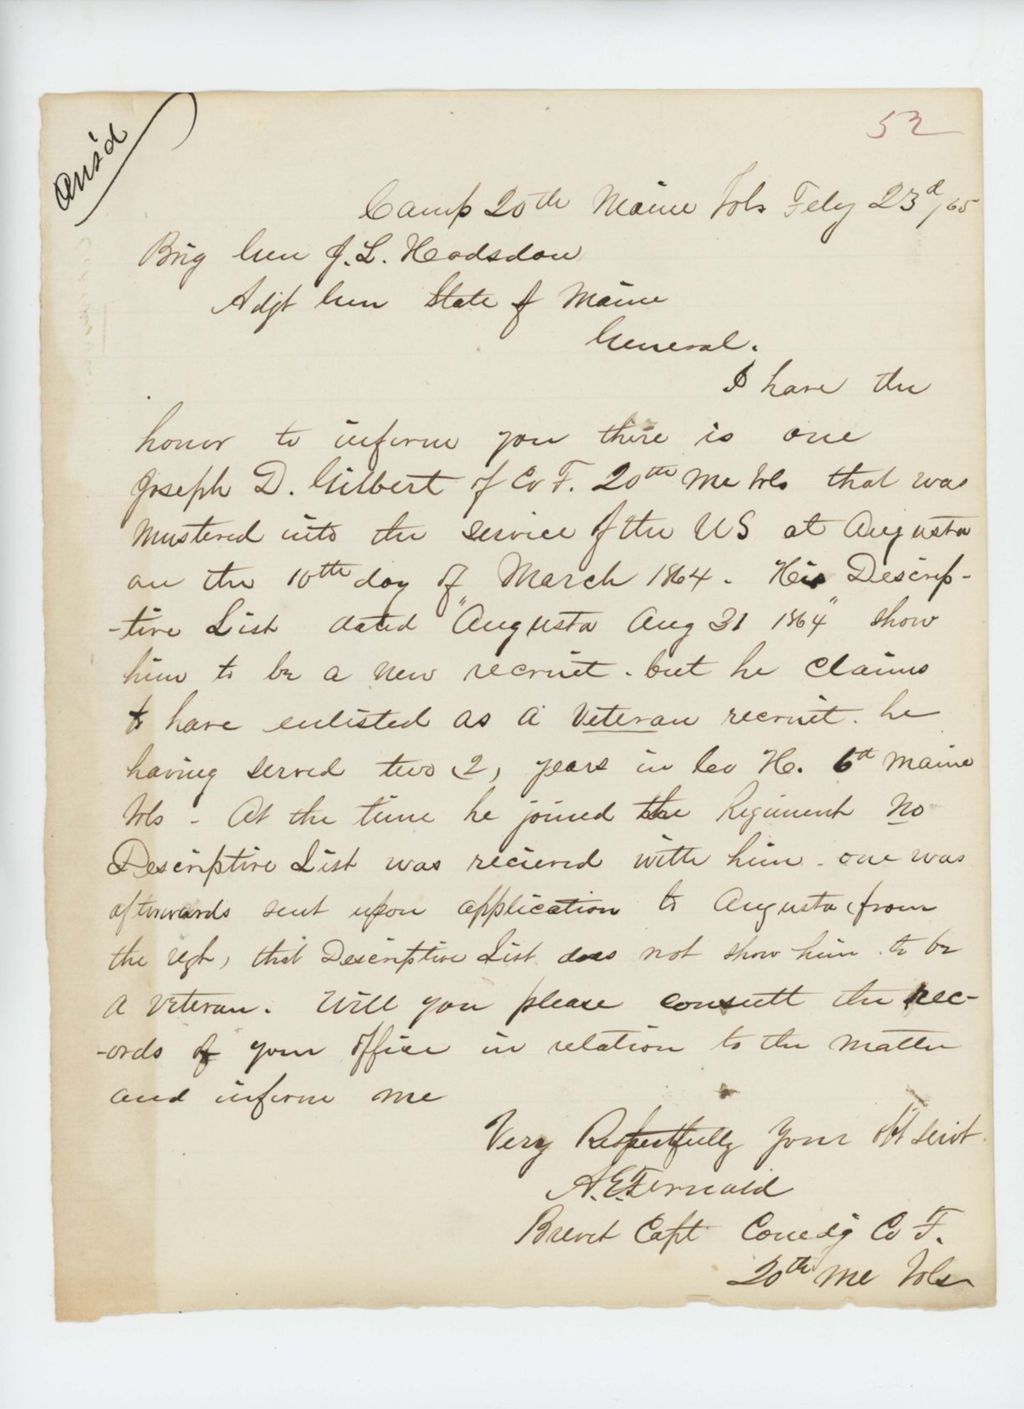 Ans'd
52
Camp 20th Maine Vols Feby 23d/65
Brig Gen J. L. Hodsdon
Adjt Gen State of Maine
General.
I have the
honor to inform you there is one
Joseph D. Gilbert of Co F. 20th Me Vols that was
mustered into the service of the US at Augusta
on the 10th day of March 1864. His Descrip-
-tive List dated "Augusta Aug 31 1864" show
him to be a new recruit. but he claims
to have enlisted as a Veteran recruit. he
having served two (2) years in Co H. 6th Maine
Vols - At the time he joined the Regiment No
Descriptive List was recieved with him - one was
afterwards sent upon application to Augusta (from
the Regt) that Descriptive List does not show him to be
a veteran. Will you please consult the rec-
-ords of your office in relation to the matter
and inform me
Very Respectfully Your Obt Servt.
A. E. Fernald
Brevet Capt Comdg Co F.
20th Me Vols